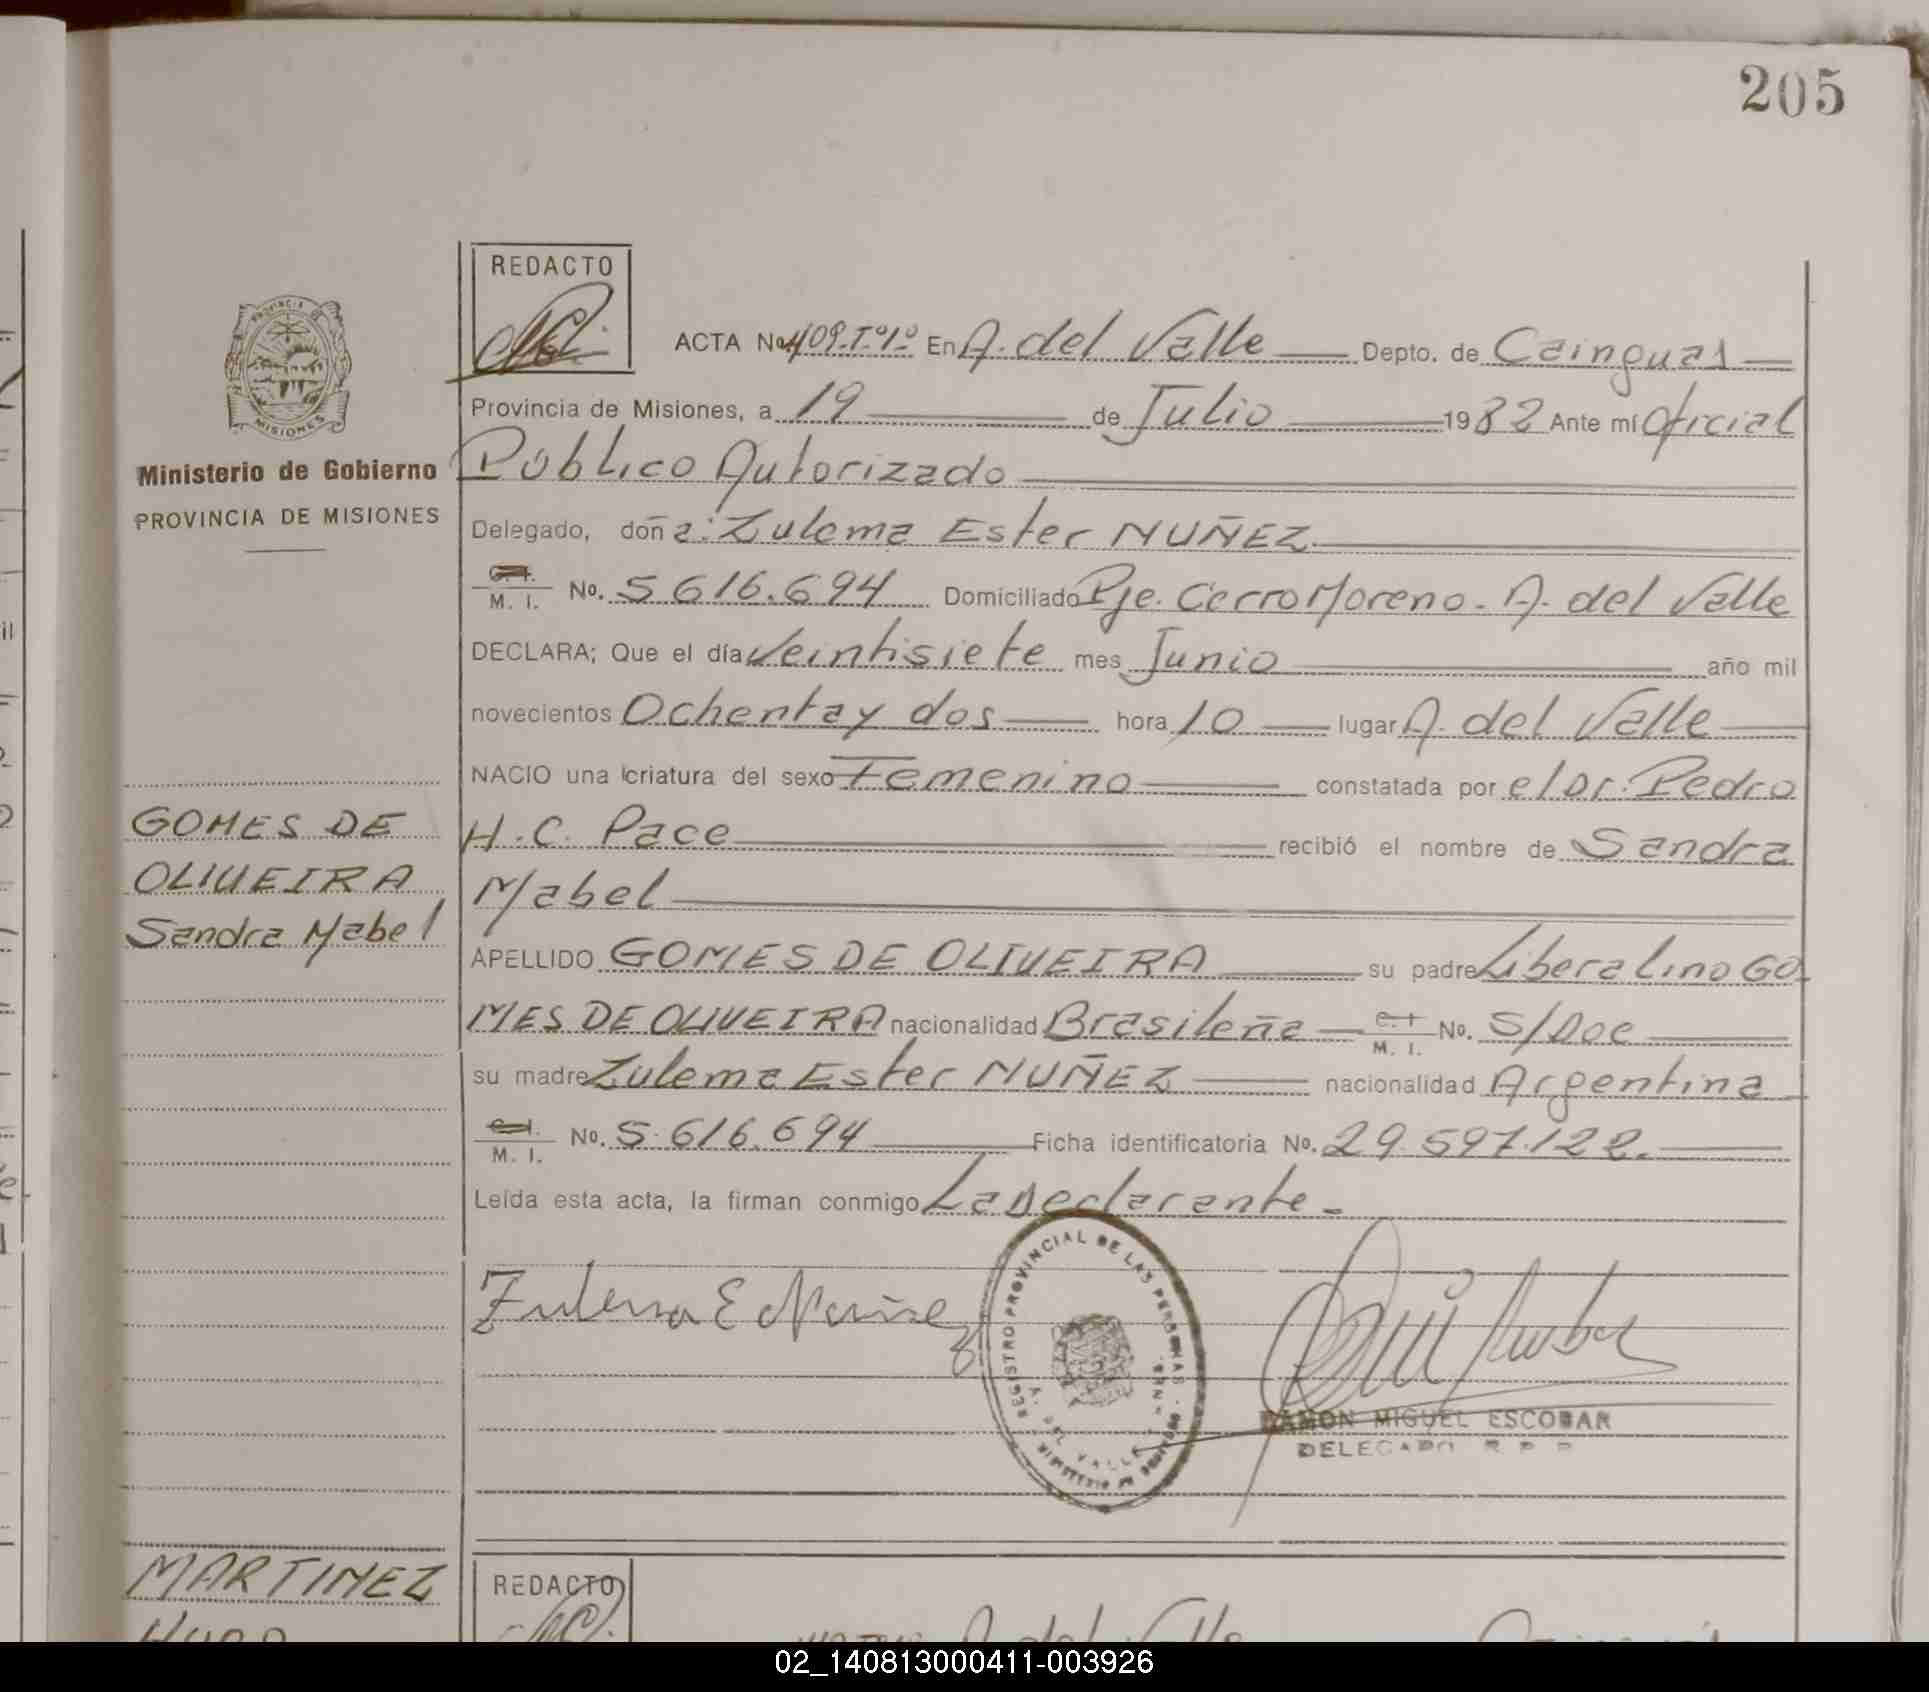 205
PROVINCIA DE
MISIONES
Ministerio de Gobierno
PROVINCIA DE MISIONES
GOMES DE
OLIVEIRA
Sandra Mabel
REDACTO
ACTA No. 409-T°1° En A. del Valle Depto. de Cainguas
Provincia de Misiones, a 19 de Julio 1982 Ante mí Oficial
Público Autorizado
Delegado, doña: Zulema Ester NUÑEZ
C. I. / M. I. No. 5 616.694 Domiciliado Pje. Cerro Moreno - A. del Valle
DECLARA; Que el día Veintisiete mes Junio año mil
novecientos Ochenta y dos hora 10 lugar A. del Valle
NACIO una criatura del sexo Femenino constatada por el Dr. Pedro
H. C. Pace recibió el nombre de Sandra
Mabel
APELLIDO GOMES DE OLIVEIRA su padre Liberalino GO
MES DE OLIVEIRA nacionalidad Brasileña C. I. / M. I. No. S/Doc
su madre Zulema Ester NUÑEZ nacionalidad Argentina
C. I. / M. I. No. 5.616.694 Ficha identificatoria No. 29.597.122.
Leída esta acta, la firman conmigo La Declarante.-
Zulema E Nuñez
REGISTRO PROVINCIAL DE LAS PERSONAS
A. DEL VALLE
RAMON MIGUEL ESCOBAR
DELEGADO R P P
MARTINEZ
HUGO
REDACTO
A. del Valle
02_140813000411-003926